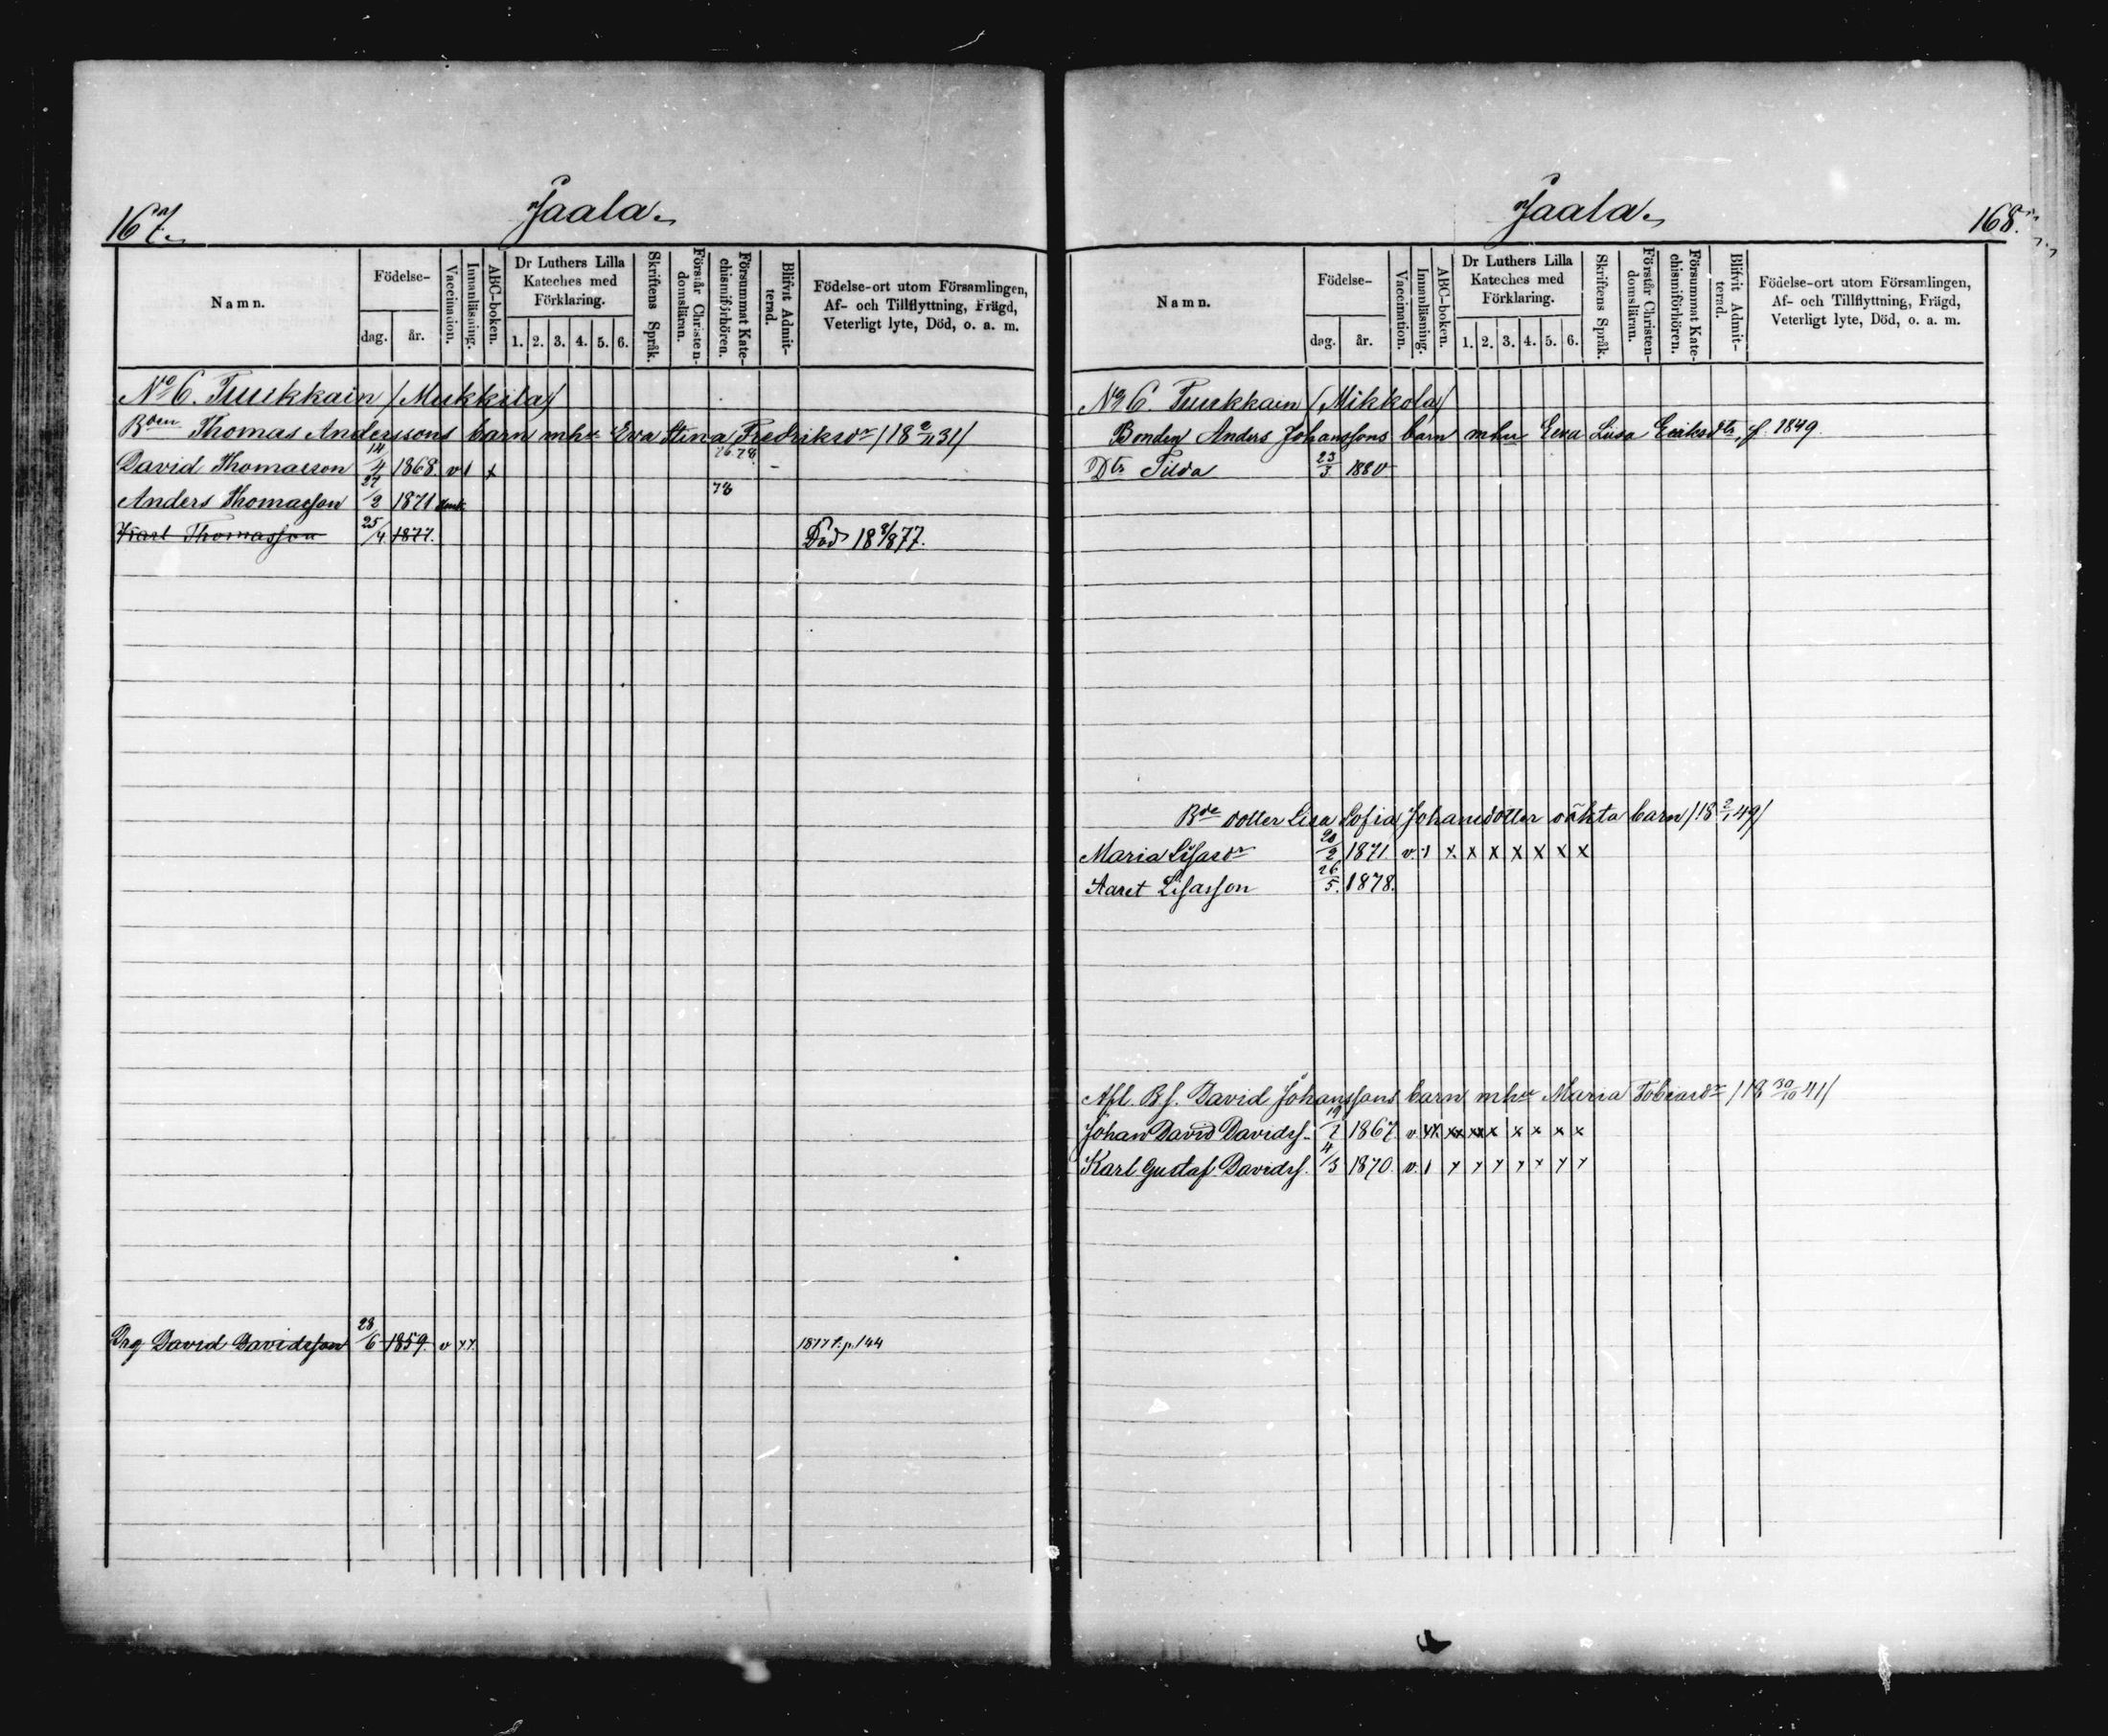 167.
Jaala.
Namn.
Födelse-
dag.
år.
Vaccination.
Innanläsning.
ABC-boken.
Dr Luthers Lilla
Kateches med
Förklaring.
1. 2. 3. 4. 5. 6.
Skriftens Språk.
Förstår Christen-
domsläran.
Försummat Kate-
chismiförhören.
Blifvit Admit-
terad.
Födelse-ort utom Församlingen,
Af- och Tillflyttning, Frägd,
Veterligt lyte, Död, o. a. m.
No 6. Tuukkain /Mukkila/
Bden Thomas Anderssons barn mhu Eva Stina Fredriksdr /18 2/11 31/
David Thomasson 14/4 1868. v 1 x 76. 78.
Anders Thomasson 27/2 1871 78
Karl Thomasson 25/4 1877. Död 18 9/8 77.
Drg David Davidsson 28/6 1859. v 1877 t. p. 144
168.
Jaala.
Namn.
Födelse-
dag.
år.
Vaccination.
Innanläsning.
ABC-boken.
Dr Luthers Lilla
Kateches med
Förklaring.
1. 2. 3. 4. 5. 6.
Skriftens Språk.
Förstår Christen-
domsläran.
Försummat Kate-
chismiförhören.
Blifvit Admit-
terad.
Födelse-ort utom Församlingen,
Af- och Tillflyttning, Frägd,
Veterligt lyte, Död, o. a. m.
No 6. Tuukkain /Mikkola/
Bonden Anders Johanssons barn mhu Eeva Liisa Eeriksdtr, f. 1849.
Dtr Tilda 23/3 1880
Bde dotter Lisa Sofia Johansdotter oäkta barn /18 2/1 49/
Maria Lisasdr 20/2 1871 v. 1 x x x x x x x
Aaret Lisasson 26/5. 1878.
Afl. Bs. David Johanssons barn mhu Maria Tobiasdr /18 30/10 41/
Johan David Davidss. 19/1 1867. v. xx xx xx x x x x x
Karl Gustaf Davidss. 4/3 1870. v. 1 x x x x x x x